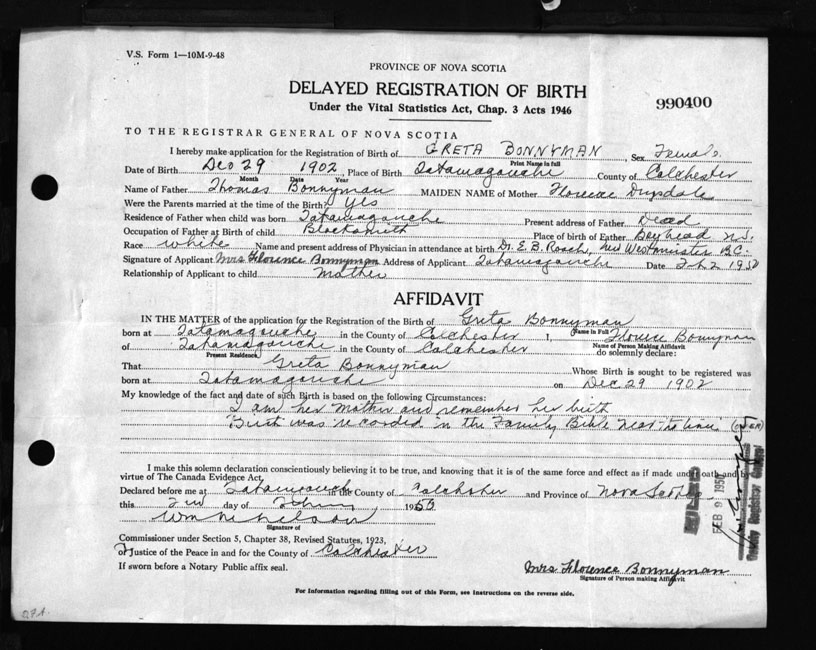 V.S. Form 1—10M-9-48
PROVINCE OF NOVA SCOTIA
DELAYED REGISTRATION OF BIRTH
Under the Vital Statistics Act, Chap. 3 Acts 1946
990400
TO THE REGISTRAR GENERAL OF NOVA SCOTIA
I hereby make application for the Registration of Birth of GRETA BONNYMAN, Sex Female
Print Name in full
Date of Birth Dec 29 1902, Place of Birth Tatamagouche County of Colchester
Month Date Year
Name of Father Thomas Bonnyman MAIDEN NAME of Mother Florence Drysdale
Were the Parents married at the time of the Birth? Yes
Residence of Father when child was born Tatamagouche Present address of Father Dead
Occupation of Father at Birth of child Blacksmith Place of birth of Father Bayhead N.S.
Race white Name and present address of Physician in attendance at birth Dr. E. B. Roach, New Westminister B.C.
Signature of Applicant Mrs Florence Bonnyman Address of Applicant Tatamagouche Date 1950
Relationship of Applicant to child Mother
AFFIDAVIT
IN THE MATTER of the application for the Registration of the Birth of Greta Bonnyman
(Name in Full)
born at Tatamagouche in the County of Colchester I, Florence Bonnyman
Name of Person Making Affidavit
of Tatamagouche in the County of Colchester do solemnly declare:
Present Residence
That Greta Bonnyman Whose Birth is sought to be registered was
born at Tatamagouche on Dec 29 1902
My knowledge of the fact and date of such Birth is based on the following Circumstances:
I am her mother and remember her birth
Birth was recorded in the Family Bible near the time (OVER)
I make this solemn declaration conscientiously believing it to be true, and knowing that it is of the same force and effect as if made under oath and by
virtue of The Canada Evidence Act.
Declared before me at Tatamagouche in the County of Colchester and Province of Nova Scotia
this 2nd day of 1950
Wm Nelson
Signature of
Commissioner under Section 5, Chapter 38, Revised Statutes, 1923,
or Justice of the Peace in and for the County of Colchester
If sworn before a Notary Public affix seal.
Mrs Florence Bonnyman
Signature of Person making Affidavit
For Information regarding filling out of this Form, see instructions on the reverse side.
FILED
FEB 9 1950